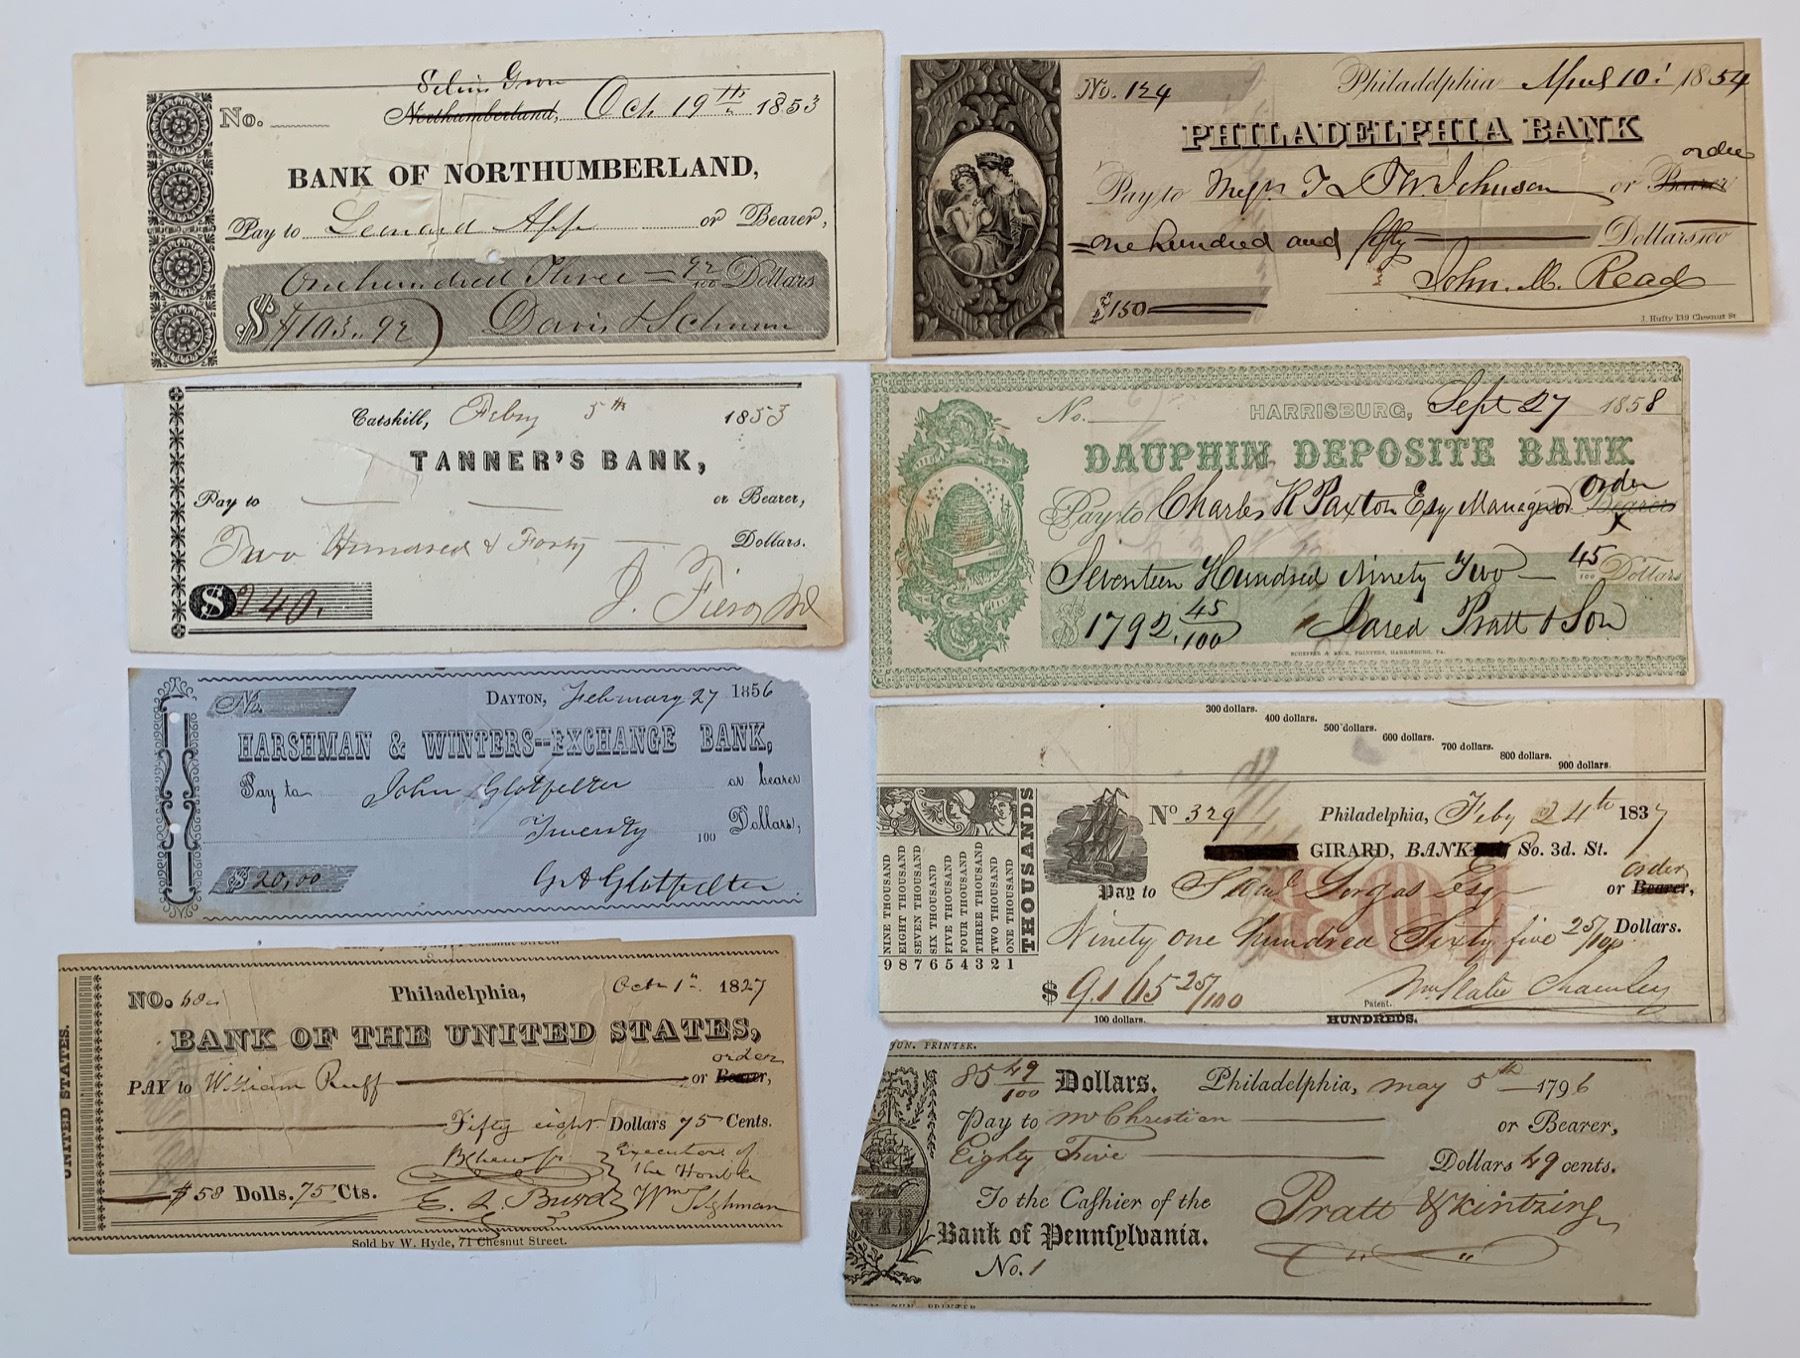 Selins Grove
No. Northumberland, Oct 19th 1853
BANK OF NORTHUMBERLAND,
Pay to Leonard App or Bearer,
One hundred Three 92/100 Dollars
$ $103.92 Davis & Schnure
No. 124 Philadelphia April 10. 1854
PHILADELPHIA BANK
order
Pay to Messrs. T & W Johnson or Bearer
one hundred and fifty Dollars 100
John. M. Read
$150
J. Hufty 139 Chesnut St
Catskill, Feby 5th 1853
TANNER'S BANK,
Pay to or Bearer,
Two Hundred & Forty Dollars.
$240.
No. HARRISBURG, Sept 27 1858
DAUPHIN DEPOSITE BANK
order
Pay to Charles K Paxton Esq Manager or Bearer
Seventeen Hundred Ninety Two 45/100 Dollars
$ 1792.45/100 Jared Pratt & Son
PRINTERS, HARRISBURG, PA.
No. DAYTON, February 27 1856
HARSHMAN & WINTERS--EXCHANGE BANK,
Pay to John Glotfelter or bearer
Twenty 100 Dollars,
$20,00 G A Glotfelter
300 dollars.
400 dollars.
500 dollars.
600 dollars.
700 dollars.
800 dollars.
900 dollars.
NINE THOUSAND 9
EIGHT THOUSAND 8
SEVEN THOUSAND 7
SIX THOUSAND 6
FIVE THOUSAND 5
FOUR THOUSAND 4
THREE THOUSAND 3
TWO THOUSAND 2
ONE THOUSAND 1
THOUSANDS
No 329 Philadelphia, Feby 24th 1837
GIRARD, BANK So. 3d. St.
order
Pay to Saml Gorgas Esq or Bearer,
Ninety one hundred Sixty five 25/100 Dollars.
$ 9.165 25/100
Patent.
100 dollars. HUNDREDS.
Chesnut Street.
UNITED STATES.
NO. Philadelphia, Octr 1st 1827
BANK OF THE UNITED STATES,
order
PAY to William Ruff or Bearer,
Fifty eight Dollars 75 Cents.
Executors of
the Honble
$ 58 Dolls. 75 Cts. E. S. Burd Wm Tilghman
Sold by W. Hyde, 71 Chesnut Street.
PRINTER.
85 49/100 Dollars. Philadelphia, May 5th 1796
Pay to Mr Christian or Bearer,
Eighty Five Dollars 49 cents.
To the Cashier of the
Bank of Pennsylvania. Pratt & Kintzing
No. 1